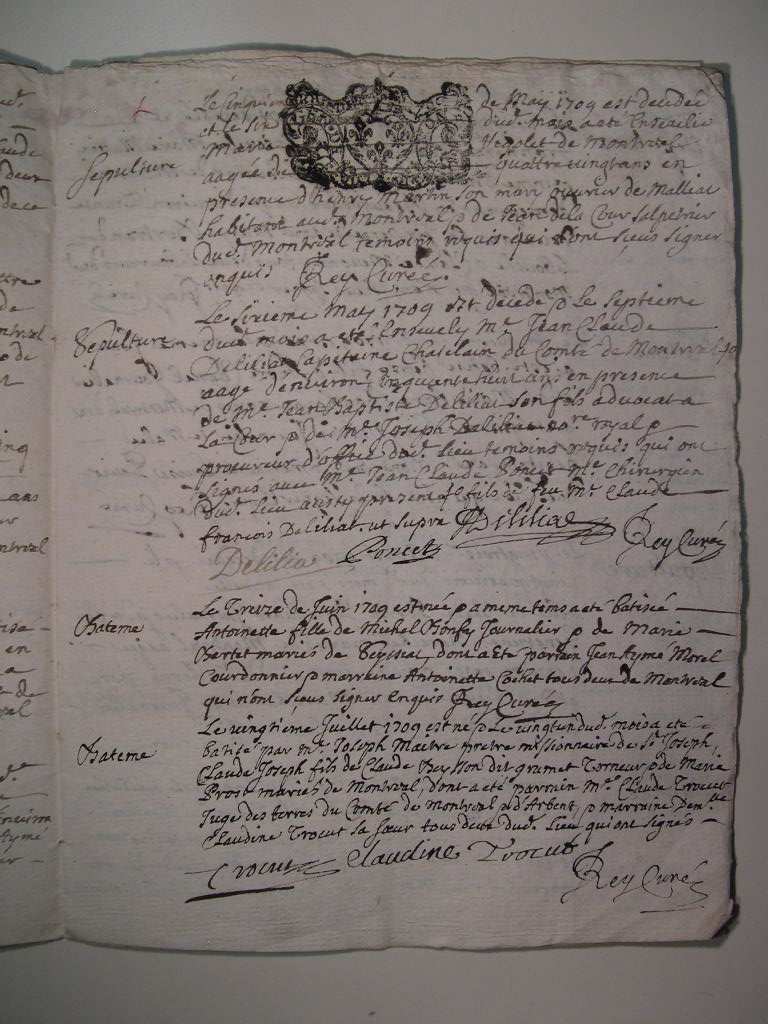 Le cinquieme de May 1709 est decedée
et le six dud. mois a eté Ensevelie
Sepulture
Marie de Montreal
aagée de quattre vingt ans en
presence d'henry Martin son mari ouvrier de
habitant aud. Montreal p de Jean dela Cour
dud. Montreal temoins requis qui n'ont sçeus signer
enquis Rey Curé
Le sixieme May 1709 est decedé p Le septieme
Sepulture
dud. mois a eté Ensevely Mr. Jean Claude
Deliliat Capitaine Chatelain du Comté de Montreal
aagé d'environ cinquante huit ans en presence
de Mr. Jean Baptiste Deliliat son fils advocat a
La Cour p de Mr. Joseph Deliliat no.re royal p
procureur d'office dud. Lieu temoins requis qui ont
signés avec Mr. Jean Claude Poncet Me. Chirurgien
dud. Lieu aussy present fils de feu Mr. Claude
françois Deliliat. ut supra Deliliat
Delilia Poncet Rey Curé
Le Treize de Juin 1709 est née p a meme tems a eté batisée
Bateme
Antoinette fille de Michel Bonfy Journalier p de Marie
Bertet mariés de dont a eté parrain Jean Aymé Morel
Courdonnier p marraine Antoinette Cochet tous deux de Montreal
qui n'ont sçeus signer enquis Rey Curé
Le vingtieme Juillet 1709 est né p Le vingt un dud. mois a eté
Bateme
batisé par Mr. Joseph Maitre pretre missionnaire de St. Joseph
Claude Joseph fils de Claude Reysson dit grumet Torneur p de Marie
Prost mariés de Montreal, dont a eté parrain Mr. Claude Trocut
Juge des terres du Comté de Montreal p d'Arbent, p marraine Dem.lle
Claudine Trocut sa sœur tous deux dud. Lieu qui ont signés
Trocut Claudine Trocut
Rey Curé